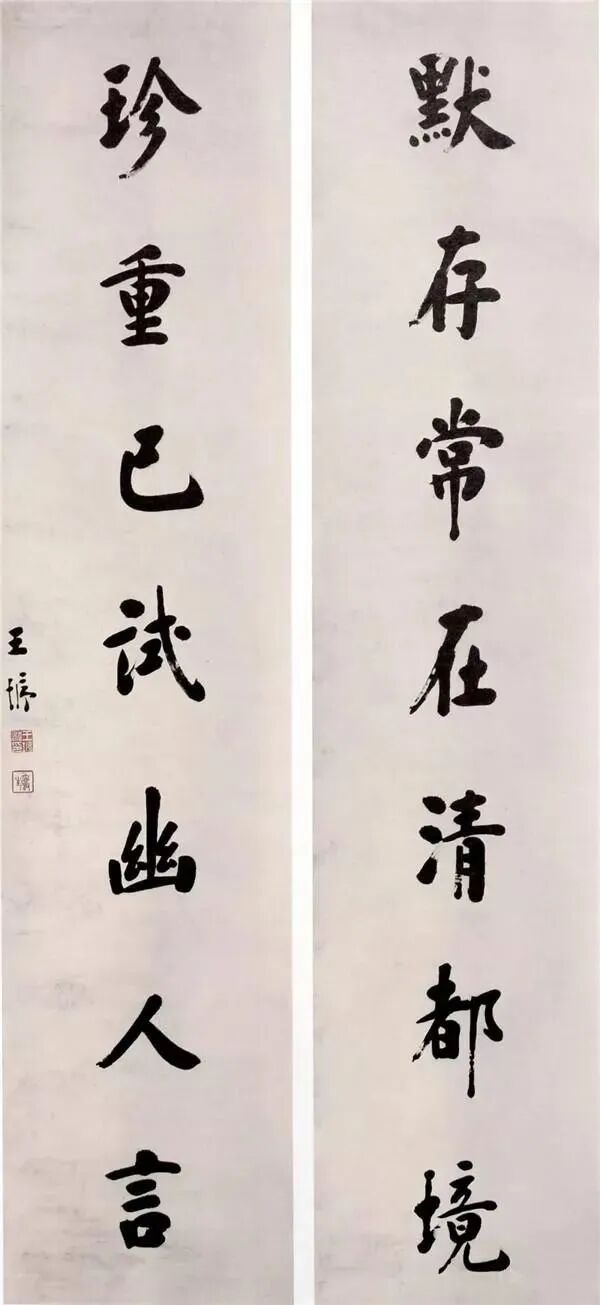 默存常在清都境
珍重已試幽人言
王垿